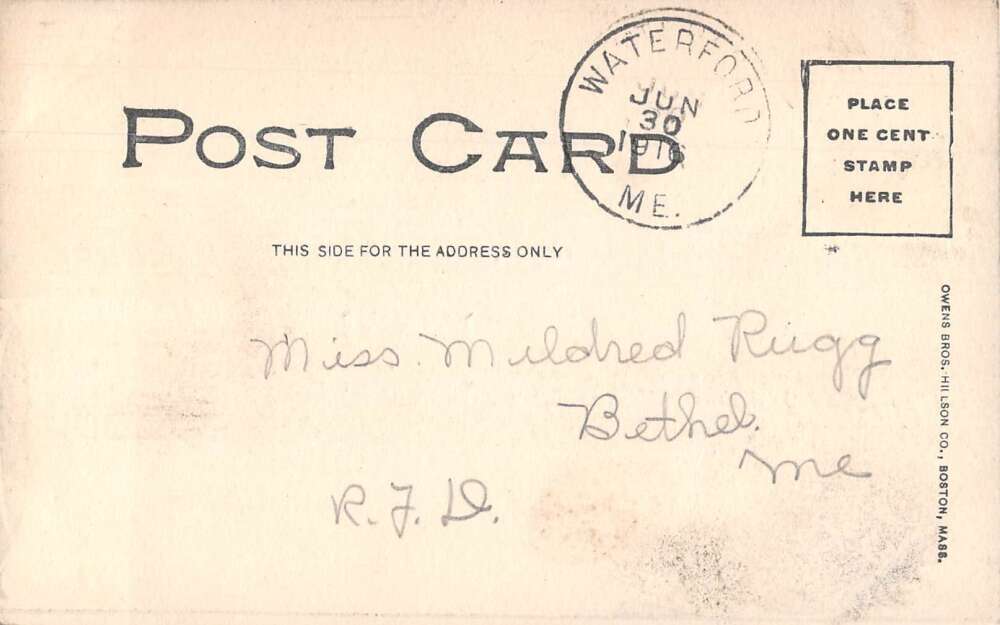 WATERFORD
JUN
30
1916
ME.
POST CARD
PLACE
ONE CENT
STAMP
HERE
THIS SIDE FOR THE ADDRESS ONLY
Miss. Mildred Rugg
Bethel.
Me
R.F.D.
OWENS BROS. HILLSON CO., BOSTON, MASS.